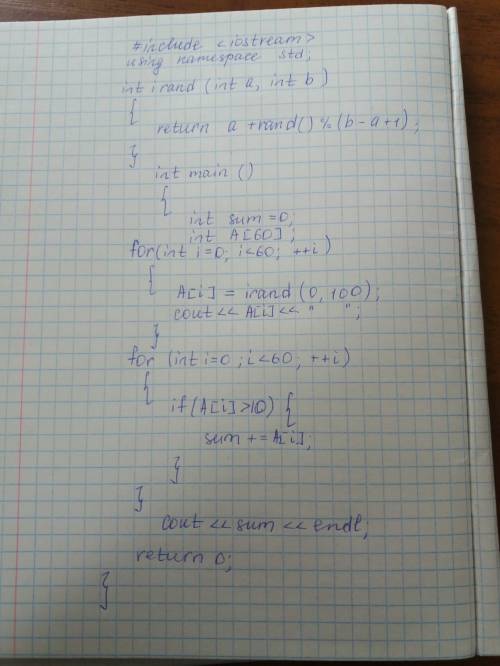 #include <iostream>
using namespace std;
int irand (int a, int b)
{
return a +rand() % (b-a+1);
}
int main ()
{
int sum =0;
int A[60];
for(int i=0; i<60; ++i)
{
A[i] = irand (0, 100);
cout << A[i] << " ";
}
for (int i=0; i<60; ++i)
{
if (A[i]>10) {
sum += A[i];
}
}
cout << sum << endl;
return 0;
}